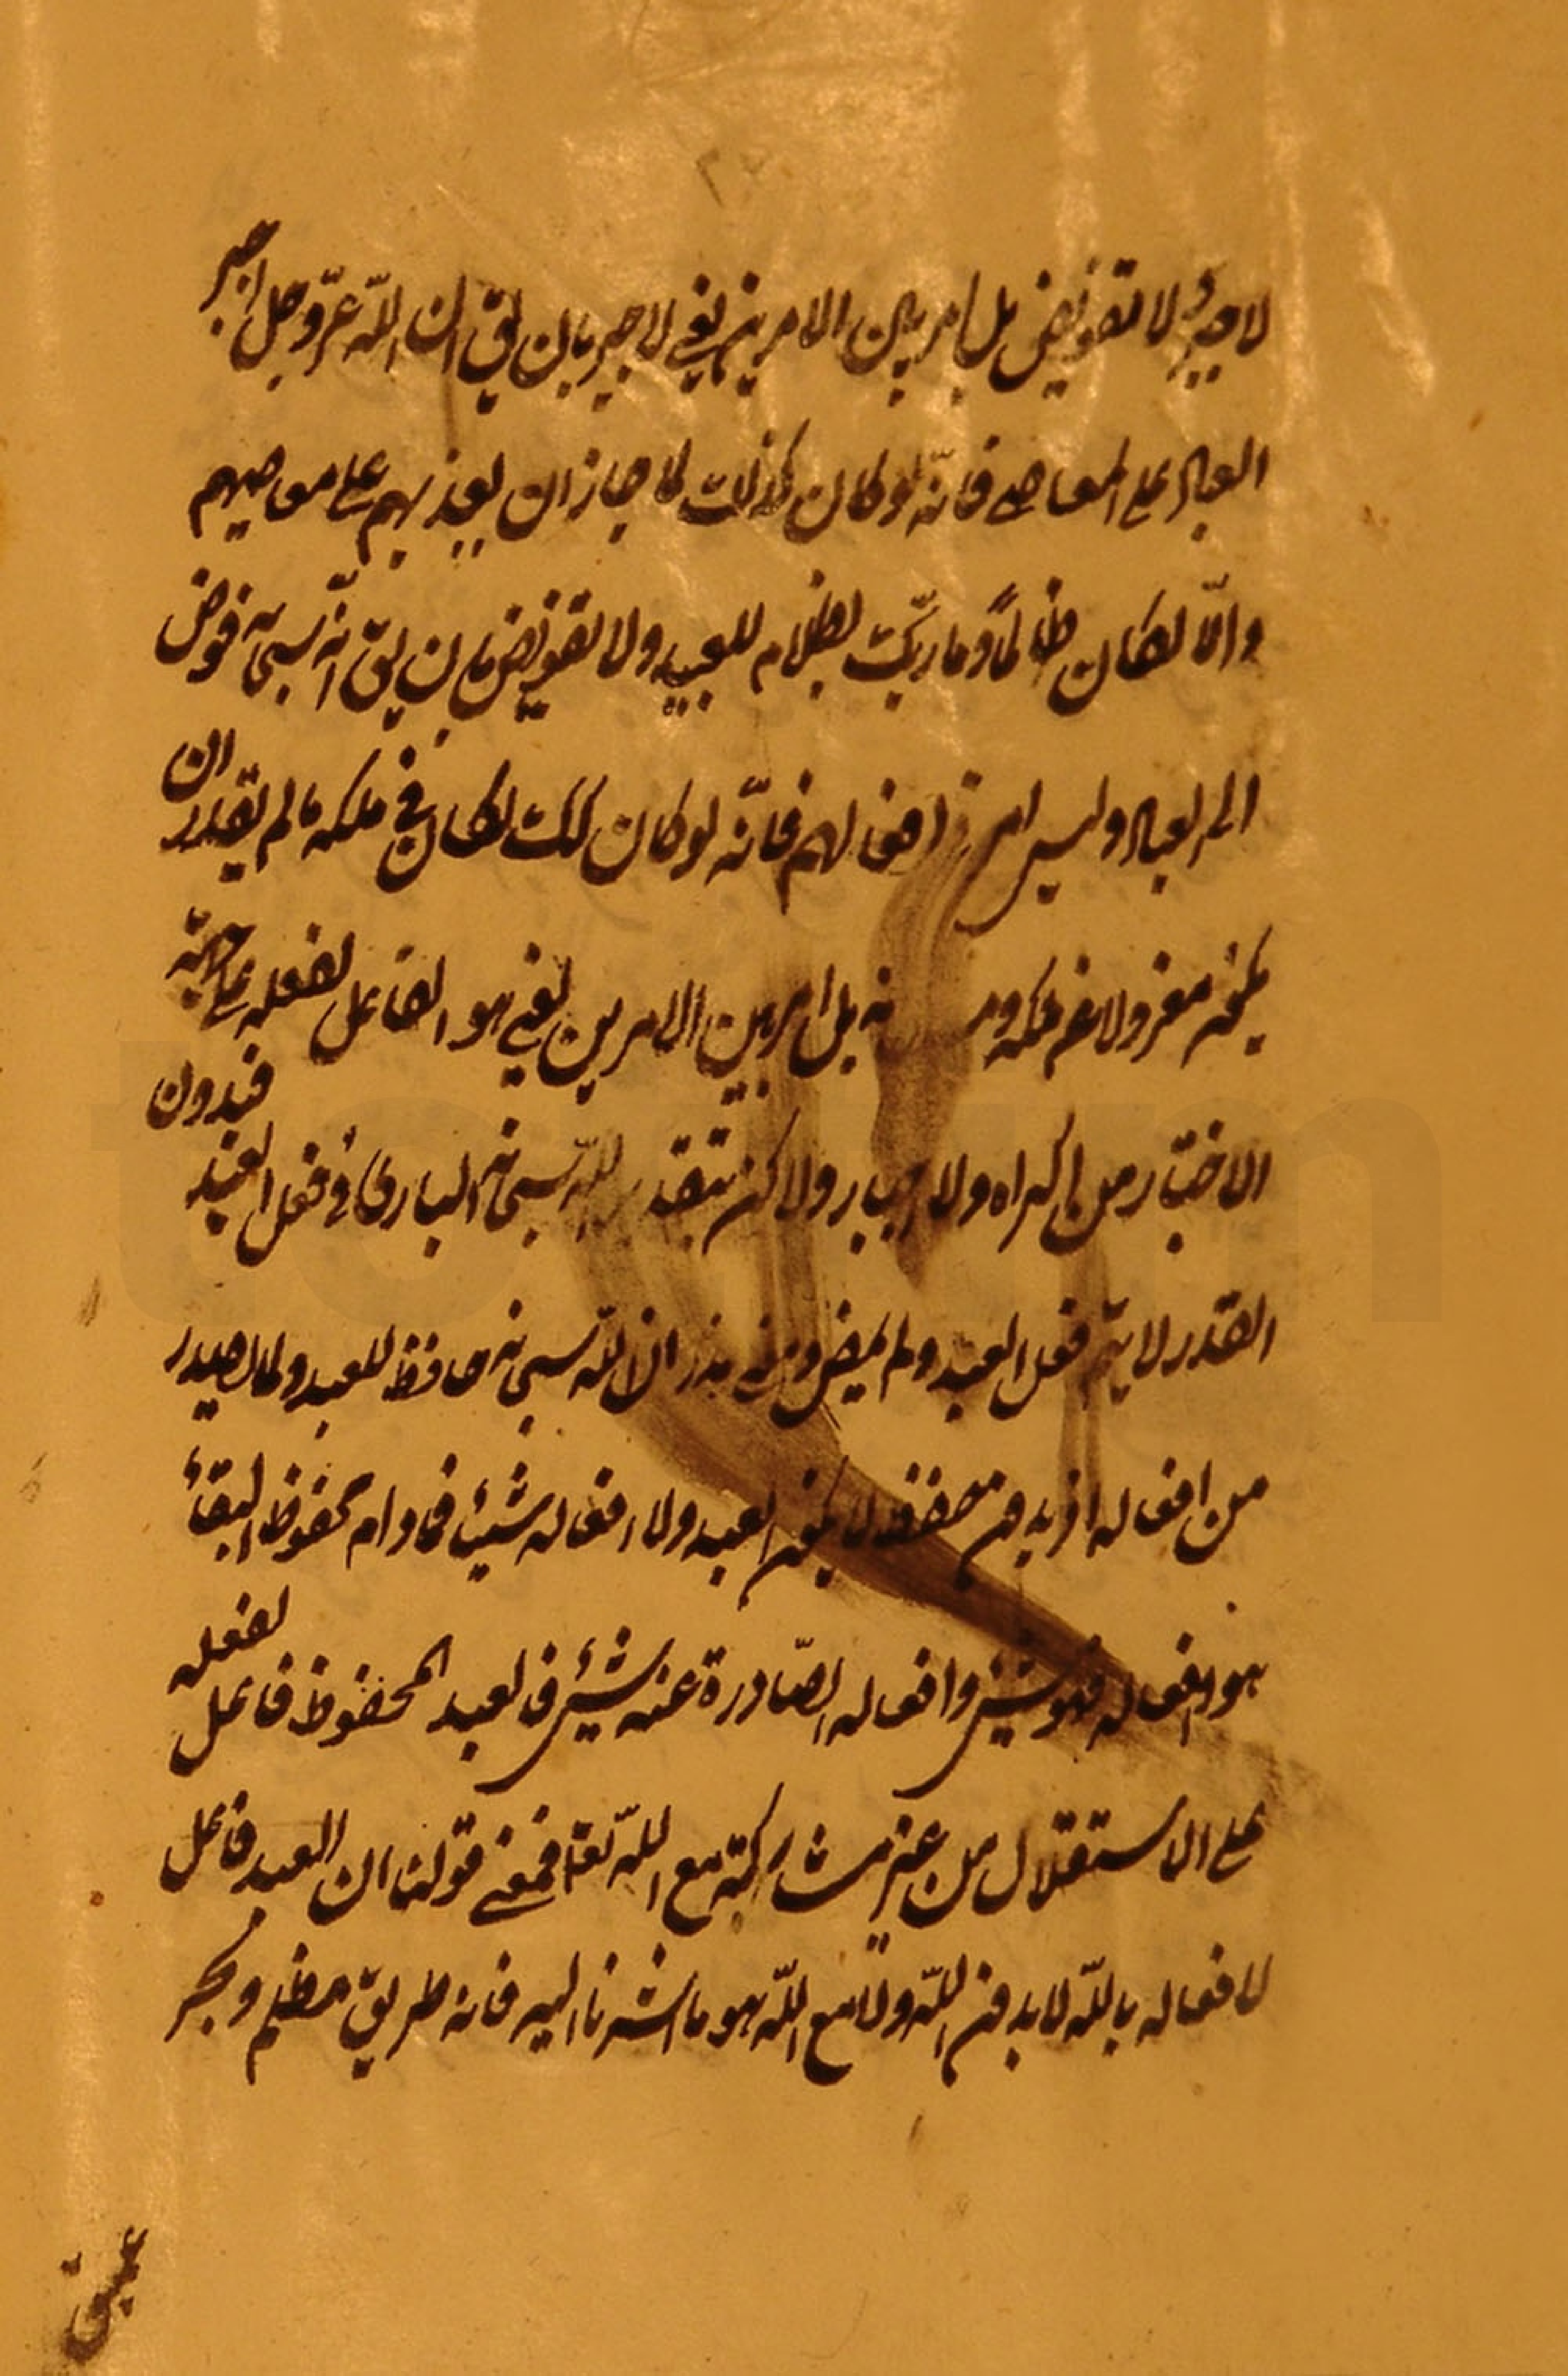 لا جبر و لا تفويض بل امر بين الامرين يعني لا جبر بان يق ان الله عزّ و جل اجبر
العباد على المعاصي فانّه لو كان كذلك لما جاز ان يعذبهم على معاصيهم
و الّا لكان ظالماً و ما ربّك بظلام للعبيد و لا تفويض بان يق انّه سبحانه فوض
العباد و ليس لهم فانّه لو كان كك لكان في ملكه ما لم يقدر ان
و لا عن بل امر بين الامرين يعني هو الفاعل لفعله على جهة
الاختيار من اكراه و لا اجبار و لاكن بتقدير الله سبحانه الباري في فعل العبد فبدون
القدر لا يتم فعل العبد و لم يمض ان الله سبحانه حافظ للعبد و لما يصدر
من افعاله اذ بدون حفظه لا يكون العبد و لا افعاله شيئا فما دام محفوظ البقاء
هو و افعاله فهو شيئ و افعاله الصّادرة عنه شيئ فالعبد المحفوظ فاعل لفعله
على الاستقلال من غير مشاركة مع الله تعا فمعنى قولنا ان العبد فاعل
لافعاله بالله لا بدون الله و لا مع الله هو ما اشرنا اليه فانه طريق مظلم و بحر
عميق